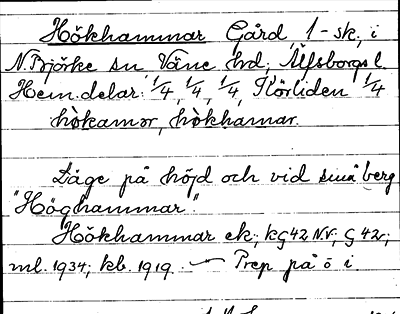 Hökhammar Gård, 1-sk, i
N. Björke sn Väne hd, Älfsborgs l.
Hem.delar: 1/4, 1/4, 1/4, Körliden 1/4
hòkamar, hòkhamar.
Läge på höjd och vid små berg
"Höghammar".
Hökhammar ek; kg42 NV; G 42v;
ml. 1934; kb. 1919. — Prep på ö i.